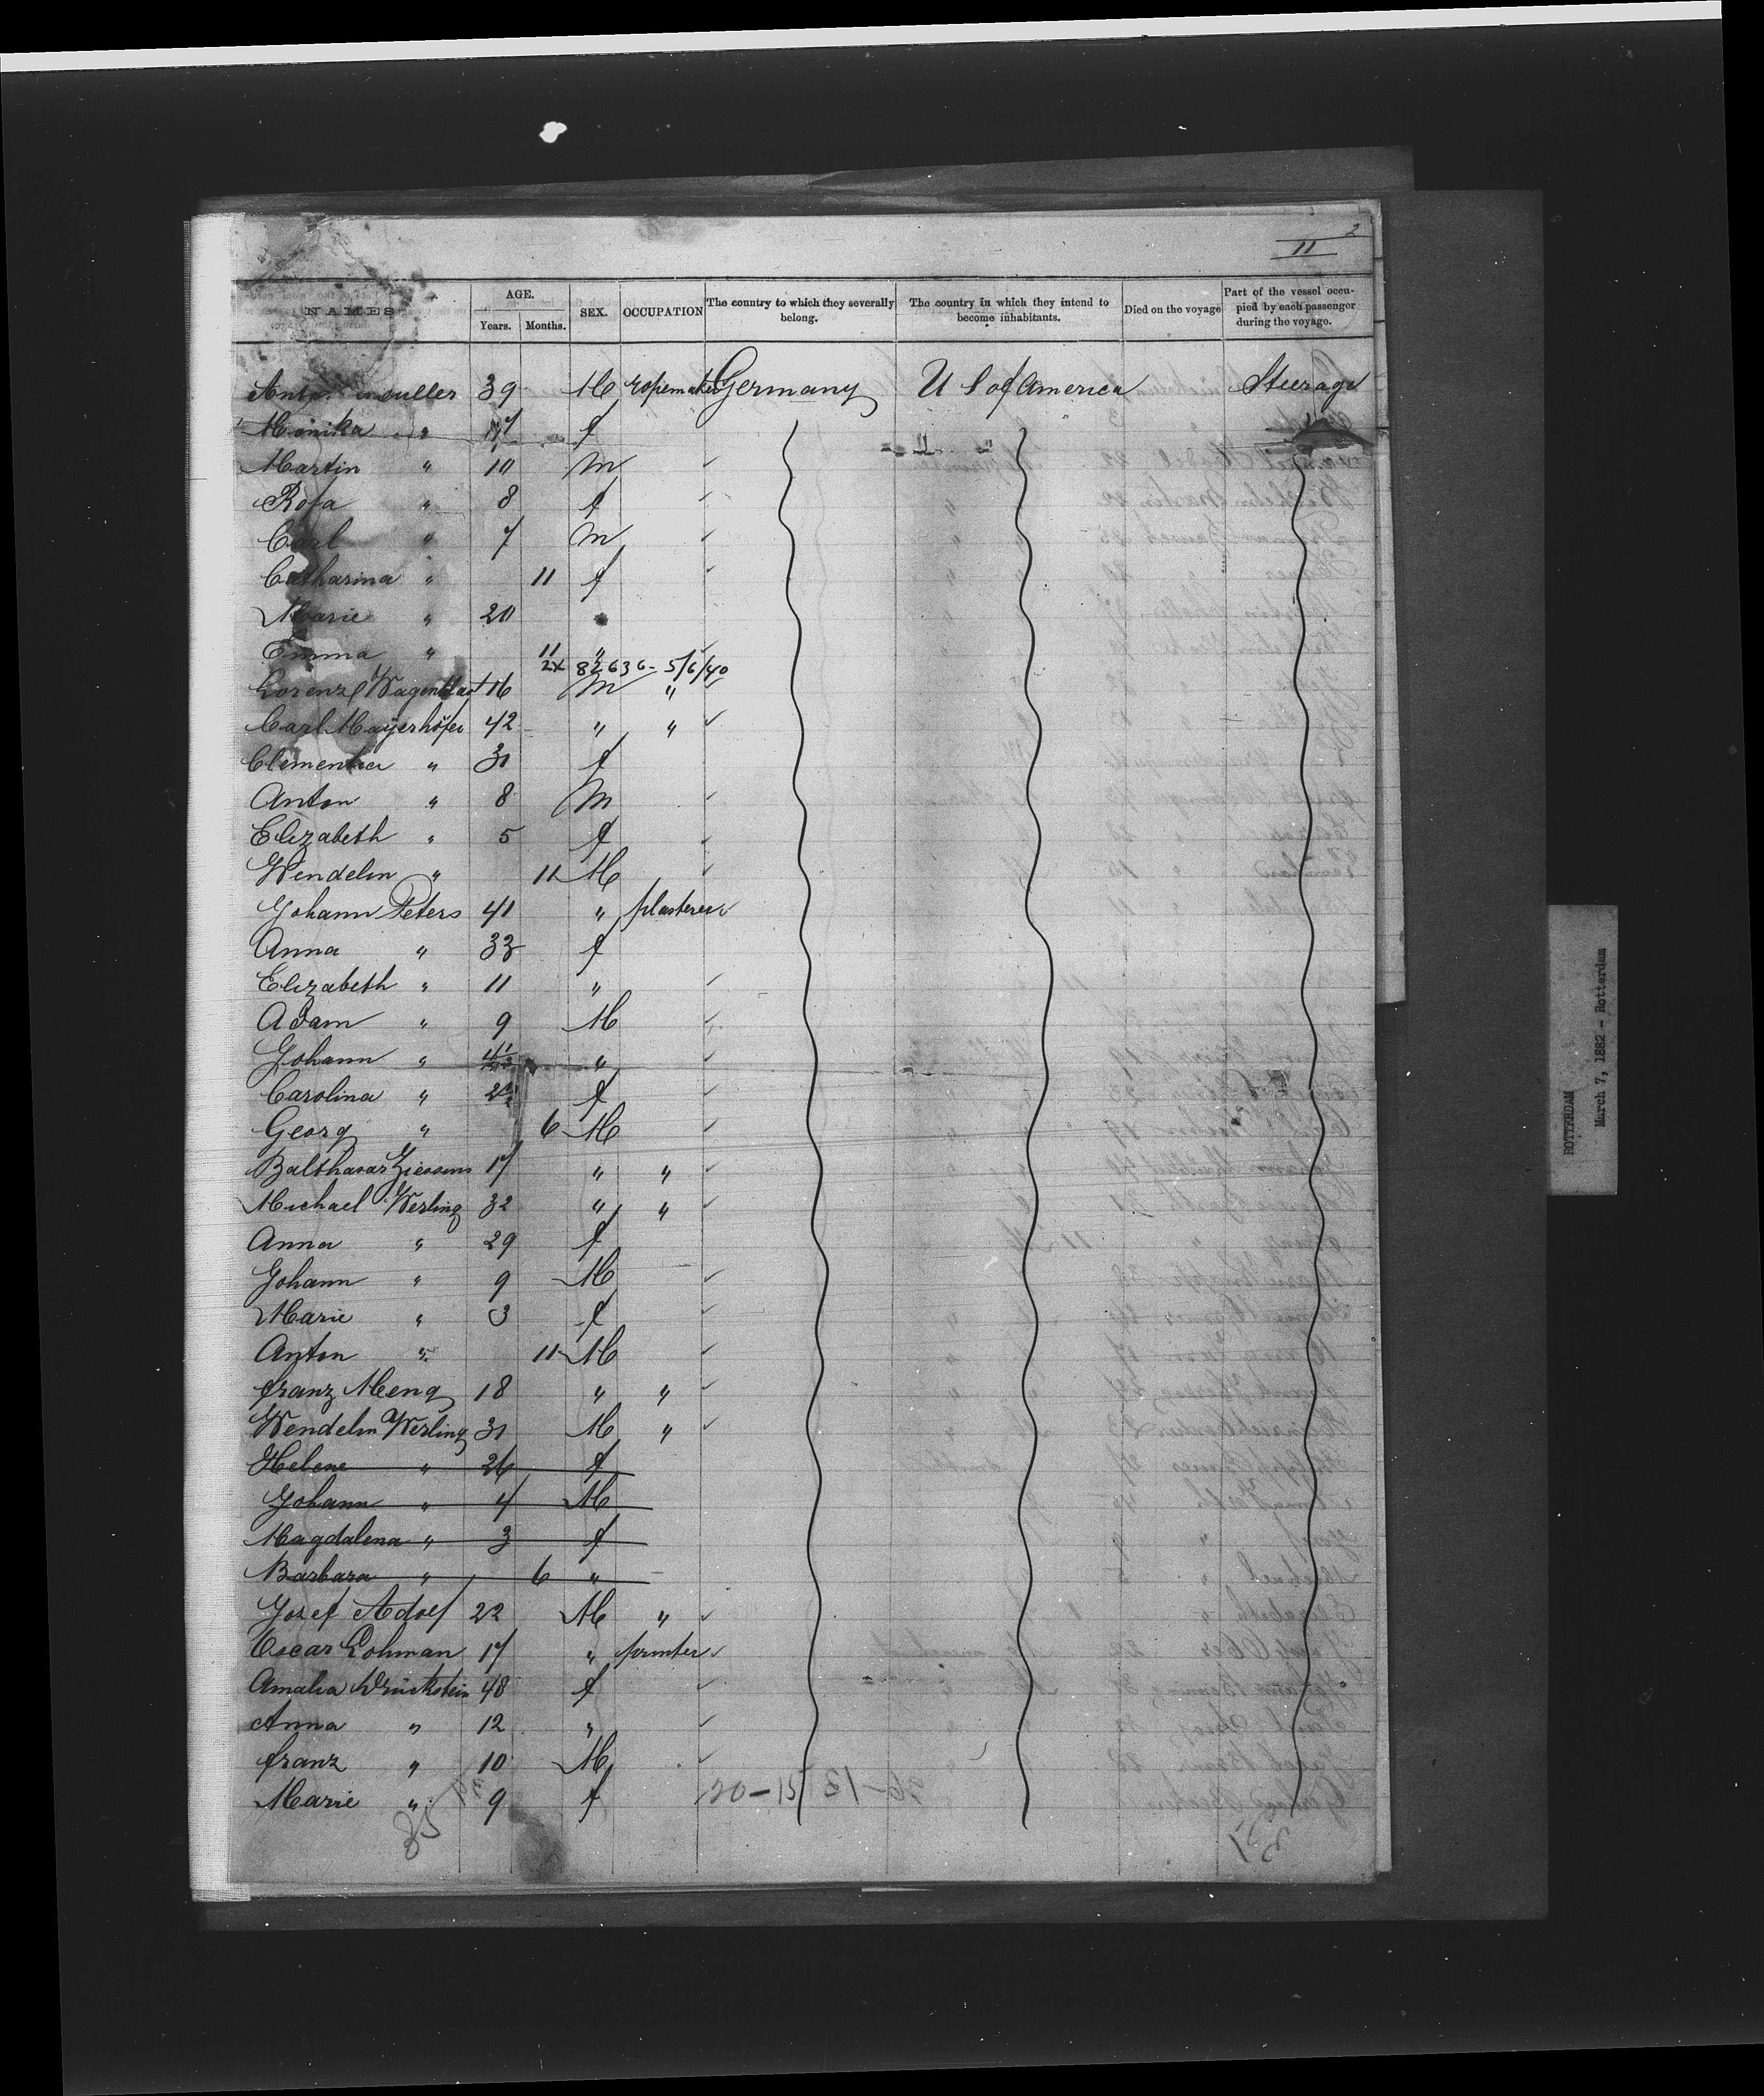 2
11
NAMES
AGE.
Years.
Months.
SEX.
OCCUPATION
The country to which they severally belong.
The country in which they intend to become inhabitants.
Died on the voyage
Part of the vessel occupied by each passenger during the voyage.
muller 39 M ropemaker Germany U S of America Steerage
Monika " f
Martin " 10 m
Rosa " 8 f
Carl " 7 m
Catharina " 11 f
Marie " 20
Emma " 11 "
2x 82636- 5/6/40
Lorenz 16 m "
Carl Mayerhöfer 42 " "
Clementia " 31 f
Anton " 8 m
Elizabeth " 5 f
Wendelin " 11 M
Johann Peters 41 " plasterer
Anna " 33 f
Elizabeth " 11 "
Adam " 9 M
Johann " "
Carolina " f
Georg " 6 M
Balthasar 17 " "
Michael Werling 32 " "
Anna " 29 f
Johann " 9 M
Marie " 3 f
Anton " 11 M
franz Meng 18 " "
Wendelin Werling 31 M "
Helene " 26 f
Johann " 4 M
Magdalena " 3 f
Barbara " 6 "
Josef Adolf 22 M "
Oscar Lohman 17 " printer
Amalia 48 f
Anna " 12 "
franz " 10 M
Marie " 9 f
85
ROTTERDAM
March 7, 1882 - Rotterdam